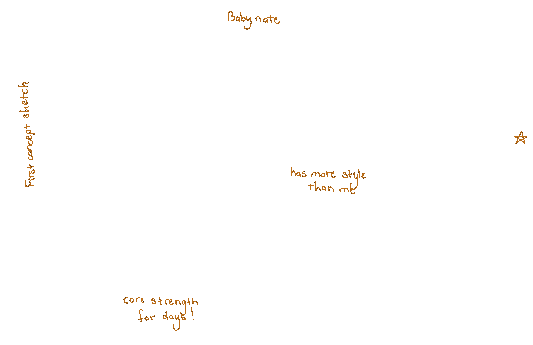 Baby note
First concept sketch
has more style
than me
core strength
for days!